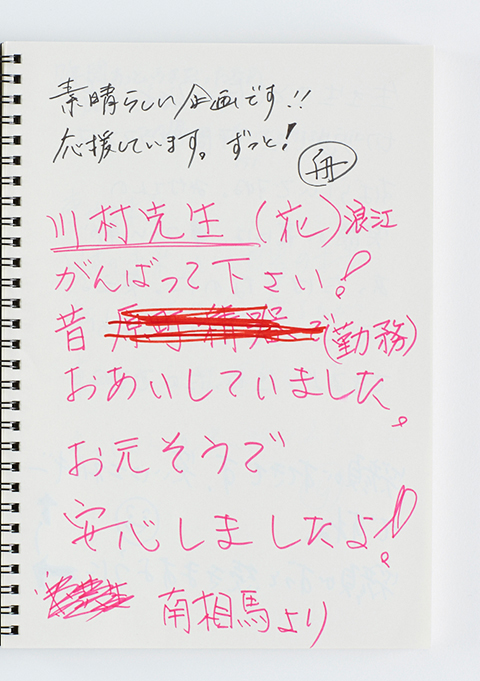 素晴らしい企画です!!
応援しています。ずっと!
舟
川村先生(花)浪江
がんばって下さい!
昔 (勤務)
おあいしていました。
お元そうで
安心しましたよ!
南相馬より